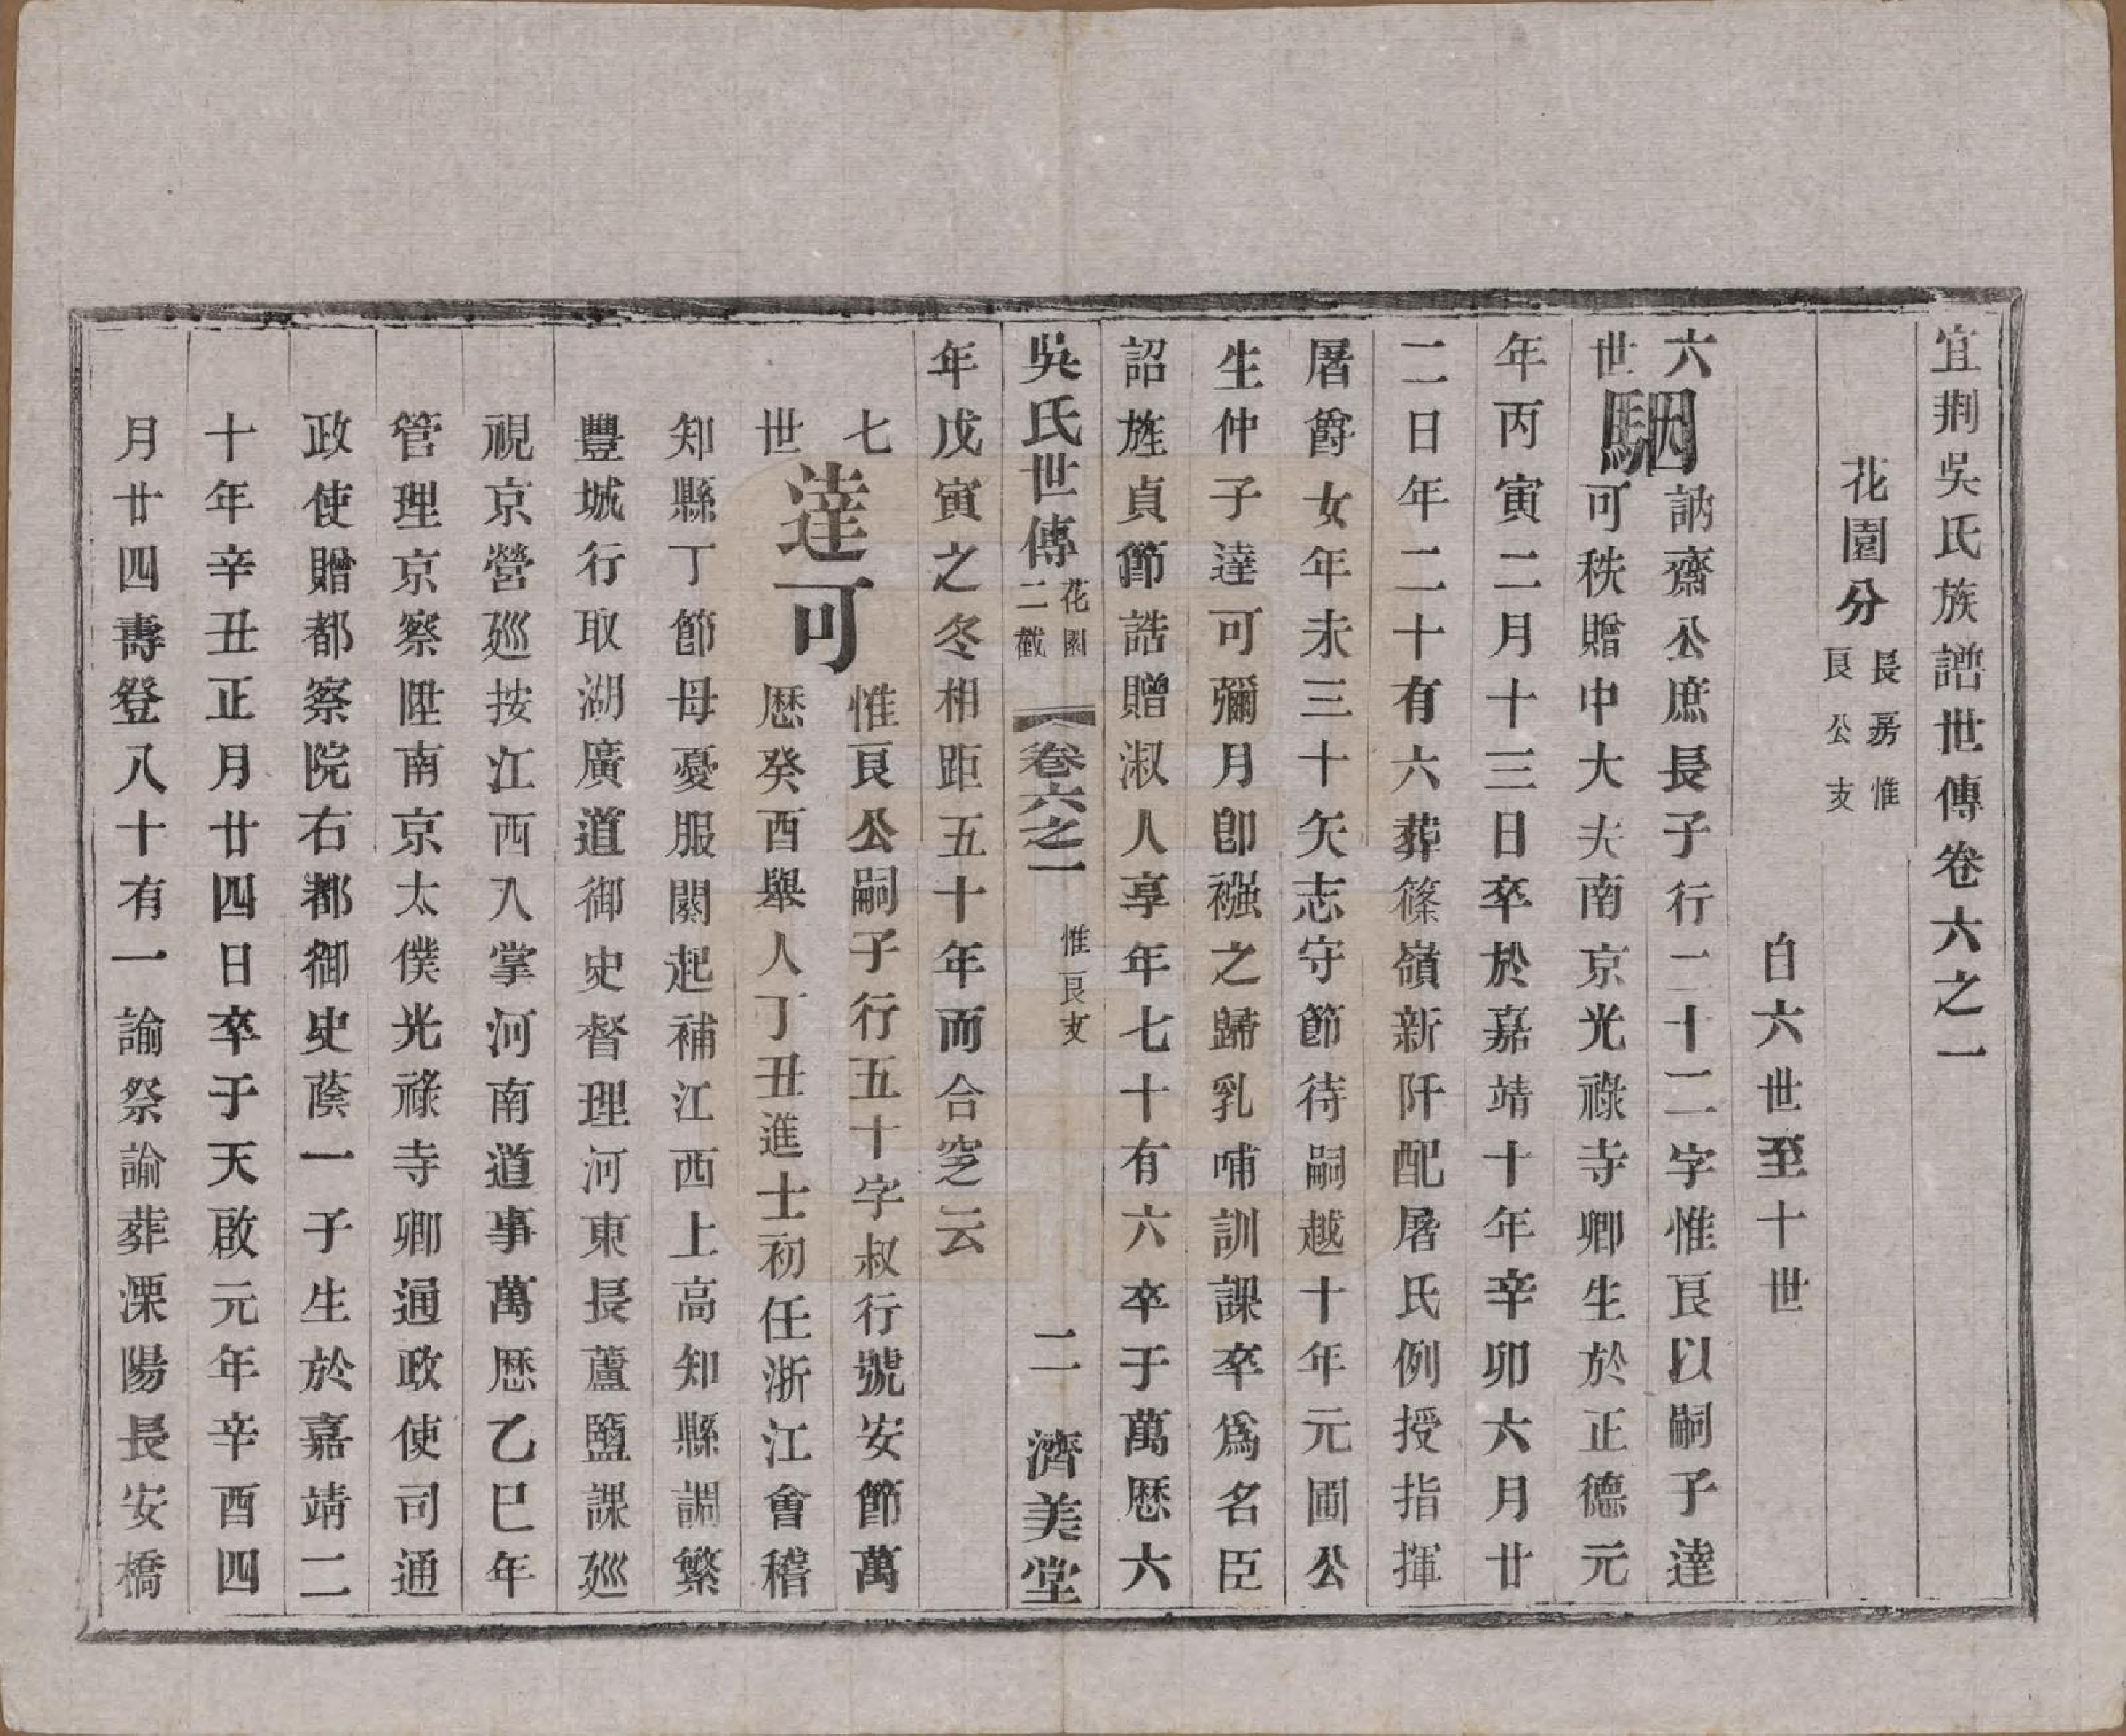 宜荆吳氏族譜世傳卷六之一
花園分 長房惟良公支
自六世至十世
六世 駰 訥齋公庶長子行二十二字惟良以嗣子達
可秩贈中大夫南京光祿寺卿生於正德元
年丙寅二月十三日卒於嘉靖十年辛卯六月廿
二日年二十有六葬篠嶺新阡配屠氏例授指揮
屠爵女年未三十矢志守節待嗣越十年元圃公
生仲子達可彌月卽襁之歸乳哺訓課卒爲名臣
詔旌貞節誥贈淑人享年七十有六卒于萬厯六
吳氏世傳 花園二截 卷六之一 惟良支 二 濟美堂
年戊寅之冬相距五十年而合窆云
七世 達可 惟良公嗣子行五十字叔行號安節萬
厯癸酉舉人丁丑進士初任浙江會稽
知縣丁節母憂服闋起補江西上高知縣調繁
豐城行取湖廣道御史督理河東長蘆鹽課廵
視京營廵按江西入掌河南道事萬厯乙巳年
管理京察陞南京太僕光祿寺卿通政使司通
政使贈都察院右都御史蔭一子生於嘉靖二
十年辛丑正月廿四日卒于天啟元年辛酉四
月廿四壽登八十有一諭祭諭葬溧陽長安橋